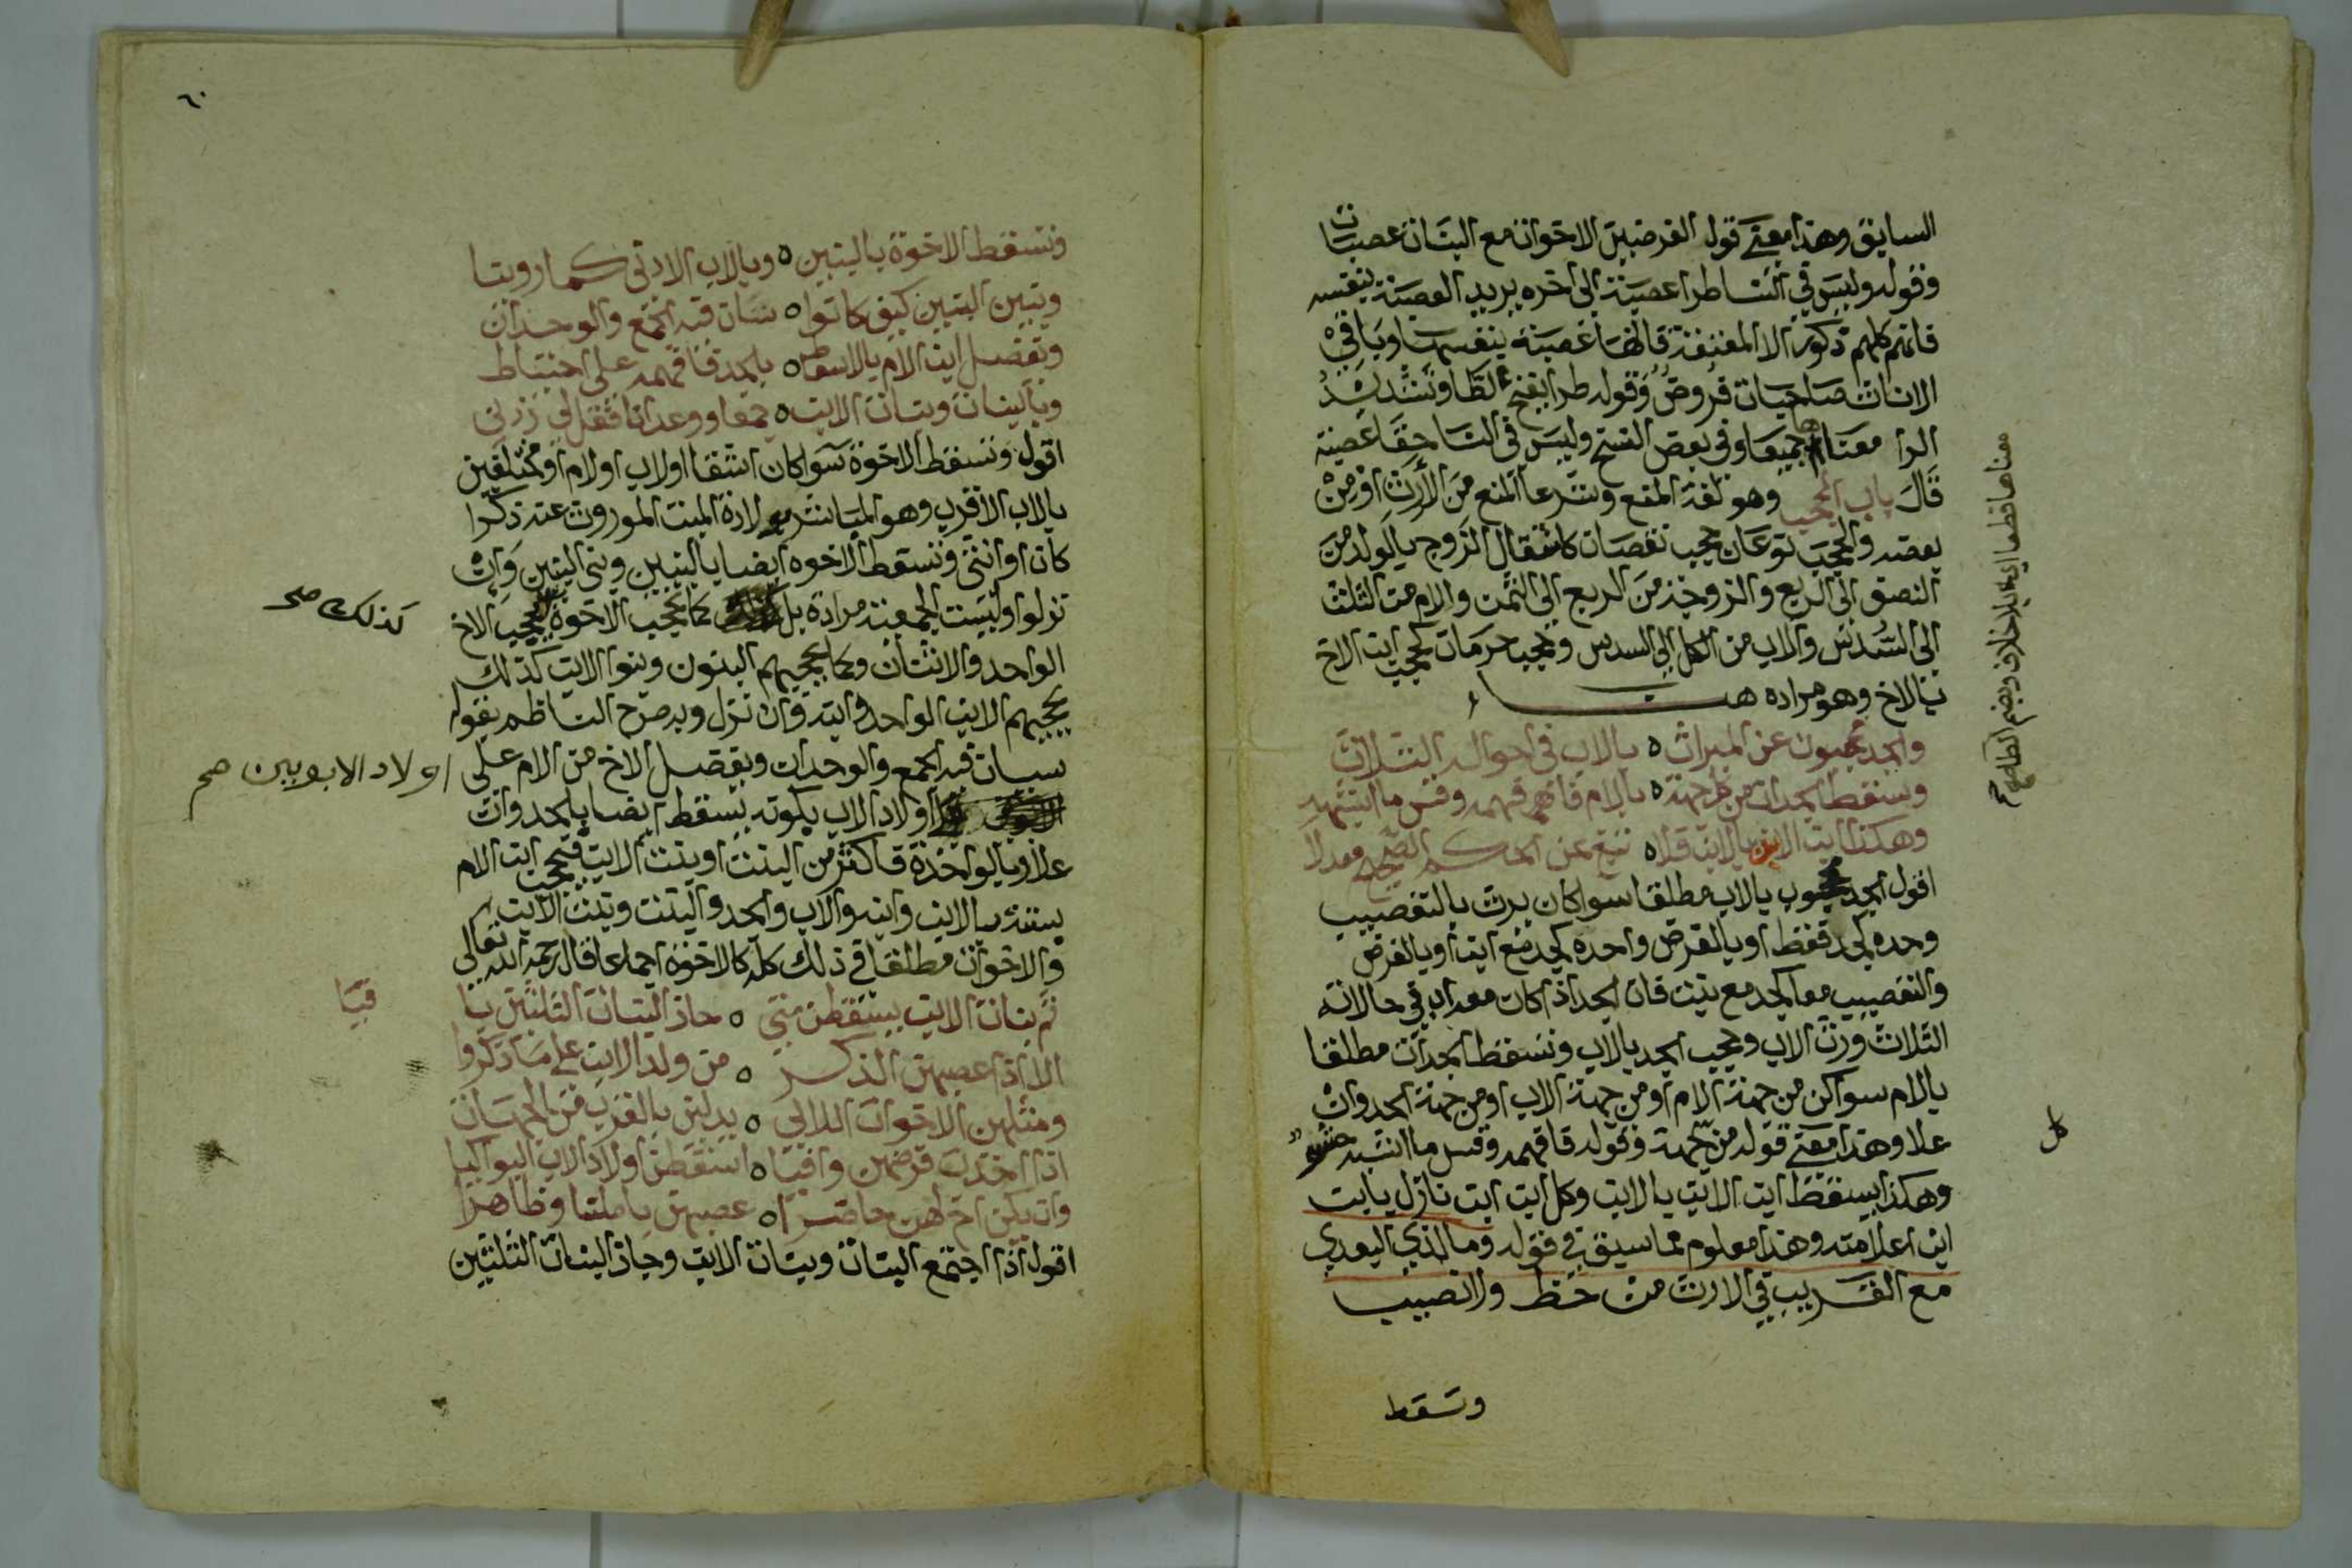 السابق وهذا معنى قول الفرضيين الاخوات مع البنات عصبات
وقوله وليس في النسا طرا عصبة الى اخره يريد العصبة بنفسه
فانهم كلهم ذكور الا المعتقة فانها عصبة بنفسها وباقي
الاناث صاحبات فروض وقوله طرا بفتح الطا وتشديد
الرا معناها جميعا وفي بعض النسخ وليس في النسا حقا عصبة
قال باب الحجب وهو لغة المنع وشرعا المنع من الأرث او من
بعضه والحجب نوعان حجب نقصان كانتقال الزوج بالولد من
النصف الى الربع والزوجة من الربع الى الثمن والام من الثلث
الى السدس والاب من الكل الى السدس وحجب حرمان كحجب ابن الاخ
بالاخ وهو مراده هنا
والجد محجوب عن الميراث ه بالاب في احواله الثلاث
وتسقط الجدات من كل جهة ه بالام فافهمه وقس ما اشبهه
وهكذا ابن الابن بالابن فلا ه تبغ عن الحكم الصحيح معدلا
اقول الجد محجوب بالاب مطلقا سوا كان يرث بالتعصيب
وحده كجد فقط او بالفرض وحده كجد مع ابن او بالفرض
والتعصيب معا كجد مع بنت فان الجد اذا كان معه اب في حالاته
الثلاث ورث الاب وحجب الجد بالاب وتسقط الجدات مطلقا
بالام سوا كن من جهة الام او من جهة الاب او من جهة الجد وان
علا وهذا معنى قوله من جهة وقوله فافهمه وقس ما اشبهه حشو
وهكذا يسقط ابن الابن بالابن وكل ابن ابن نازل بابن
ابن اعلا منه وهذا معلوم مما سبق في قوله وما لذي البعدى
مع القريب في الارث من حظ ولا نصيب
وتسقط
معناها قطعا اي بلا خلاف وبضم الطا صح
كل
٦٠
وتسقط الاخوة بالبنين ه وبالاب الادنى كما روينا
وببني البنين كيف كانوا ه سيان فيه الجمع والوحدان
ويفضل ابن الام بالاسقاط ه بالجد فافهمه على احتياط
وبالبنات وبنات الابن ه جمعا ووحدانا فقل لي زدني
اقول وتسقط الاخوة سوا كان اشقا او لاب او لام او مختلفين
بالاب الاقرب وهو المباشر لولادة الميت الموروث عنه ذكرا
كان او انثى وتسقط الاخوه ايضا بالبنين وبني البنين وان
نزلوا وليست الجمعية مراده بل كما تحجب الاخوة يحجب الاخ
كذلك صح
الواحد والانثيان وكما يحجبهم البنون وبنوا الابن كذلك
يحجبهم الابن الواحد وابنه وان نزل وبه صرح الناظم بقوله
سيان فيه الجمع والوحدان ويفضل الاخ من الام على
اولاد الابوين صح
اولاد الاب بكونه يسقط ايضا بالجد وان
علا وبالواحدة فاكثر من البنت او بنت الابن فيحجب ابن الام
بستة بالابن وابنه والاب والجد والبنت وبنت الابن
والاخوات مطلقا في ذلك كله كالاخوة اجماعا قال رحمه الله تعالى
ثم بنات الابن يسقطن متى ه حاز البنات الثلثين يا
فتيا
الا اذا عصبهن الذكر ه من ولد الابن على ما ذكروا
ومثلهن الاخوات اللاتي ه يدلين بالقرب من الجهات
اذا اخذن فرضهن وافيا ه اسقطن اولاد الاب البواكيا
وان يكن اخ لهن حاضرا ه عصبهن باطنا وظاهرا
اقول اذا اجتمع البنات وبنات الابن وحاز البنات الثلثين